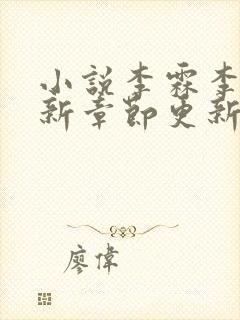 小說李霖李
新章節更新
廖偉